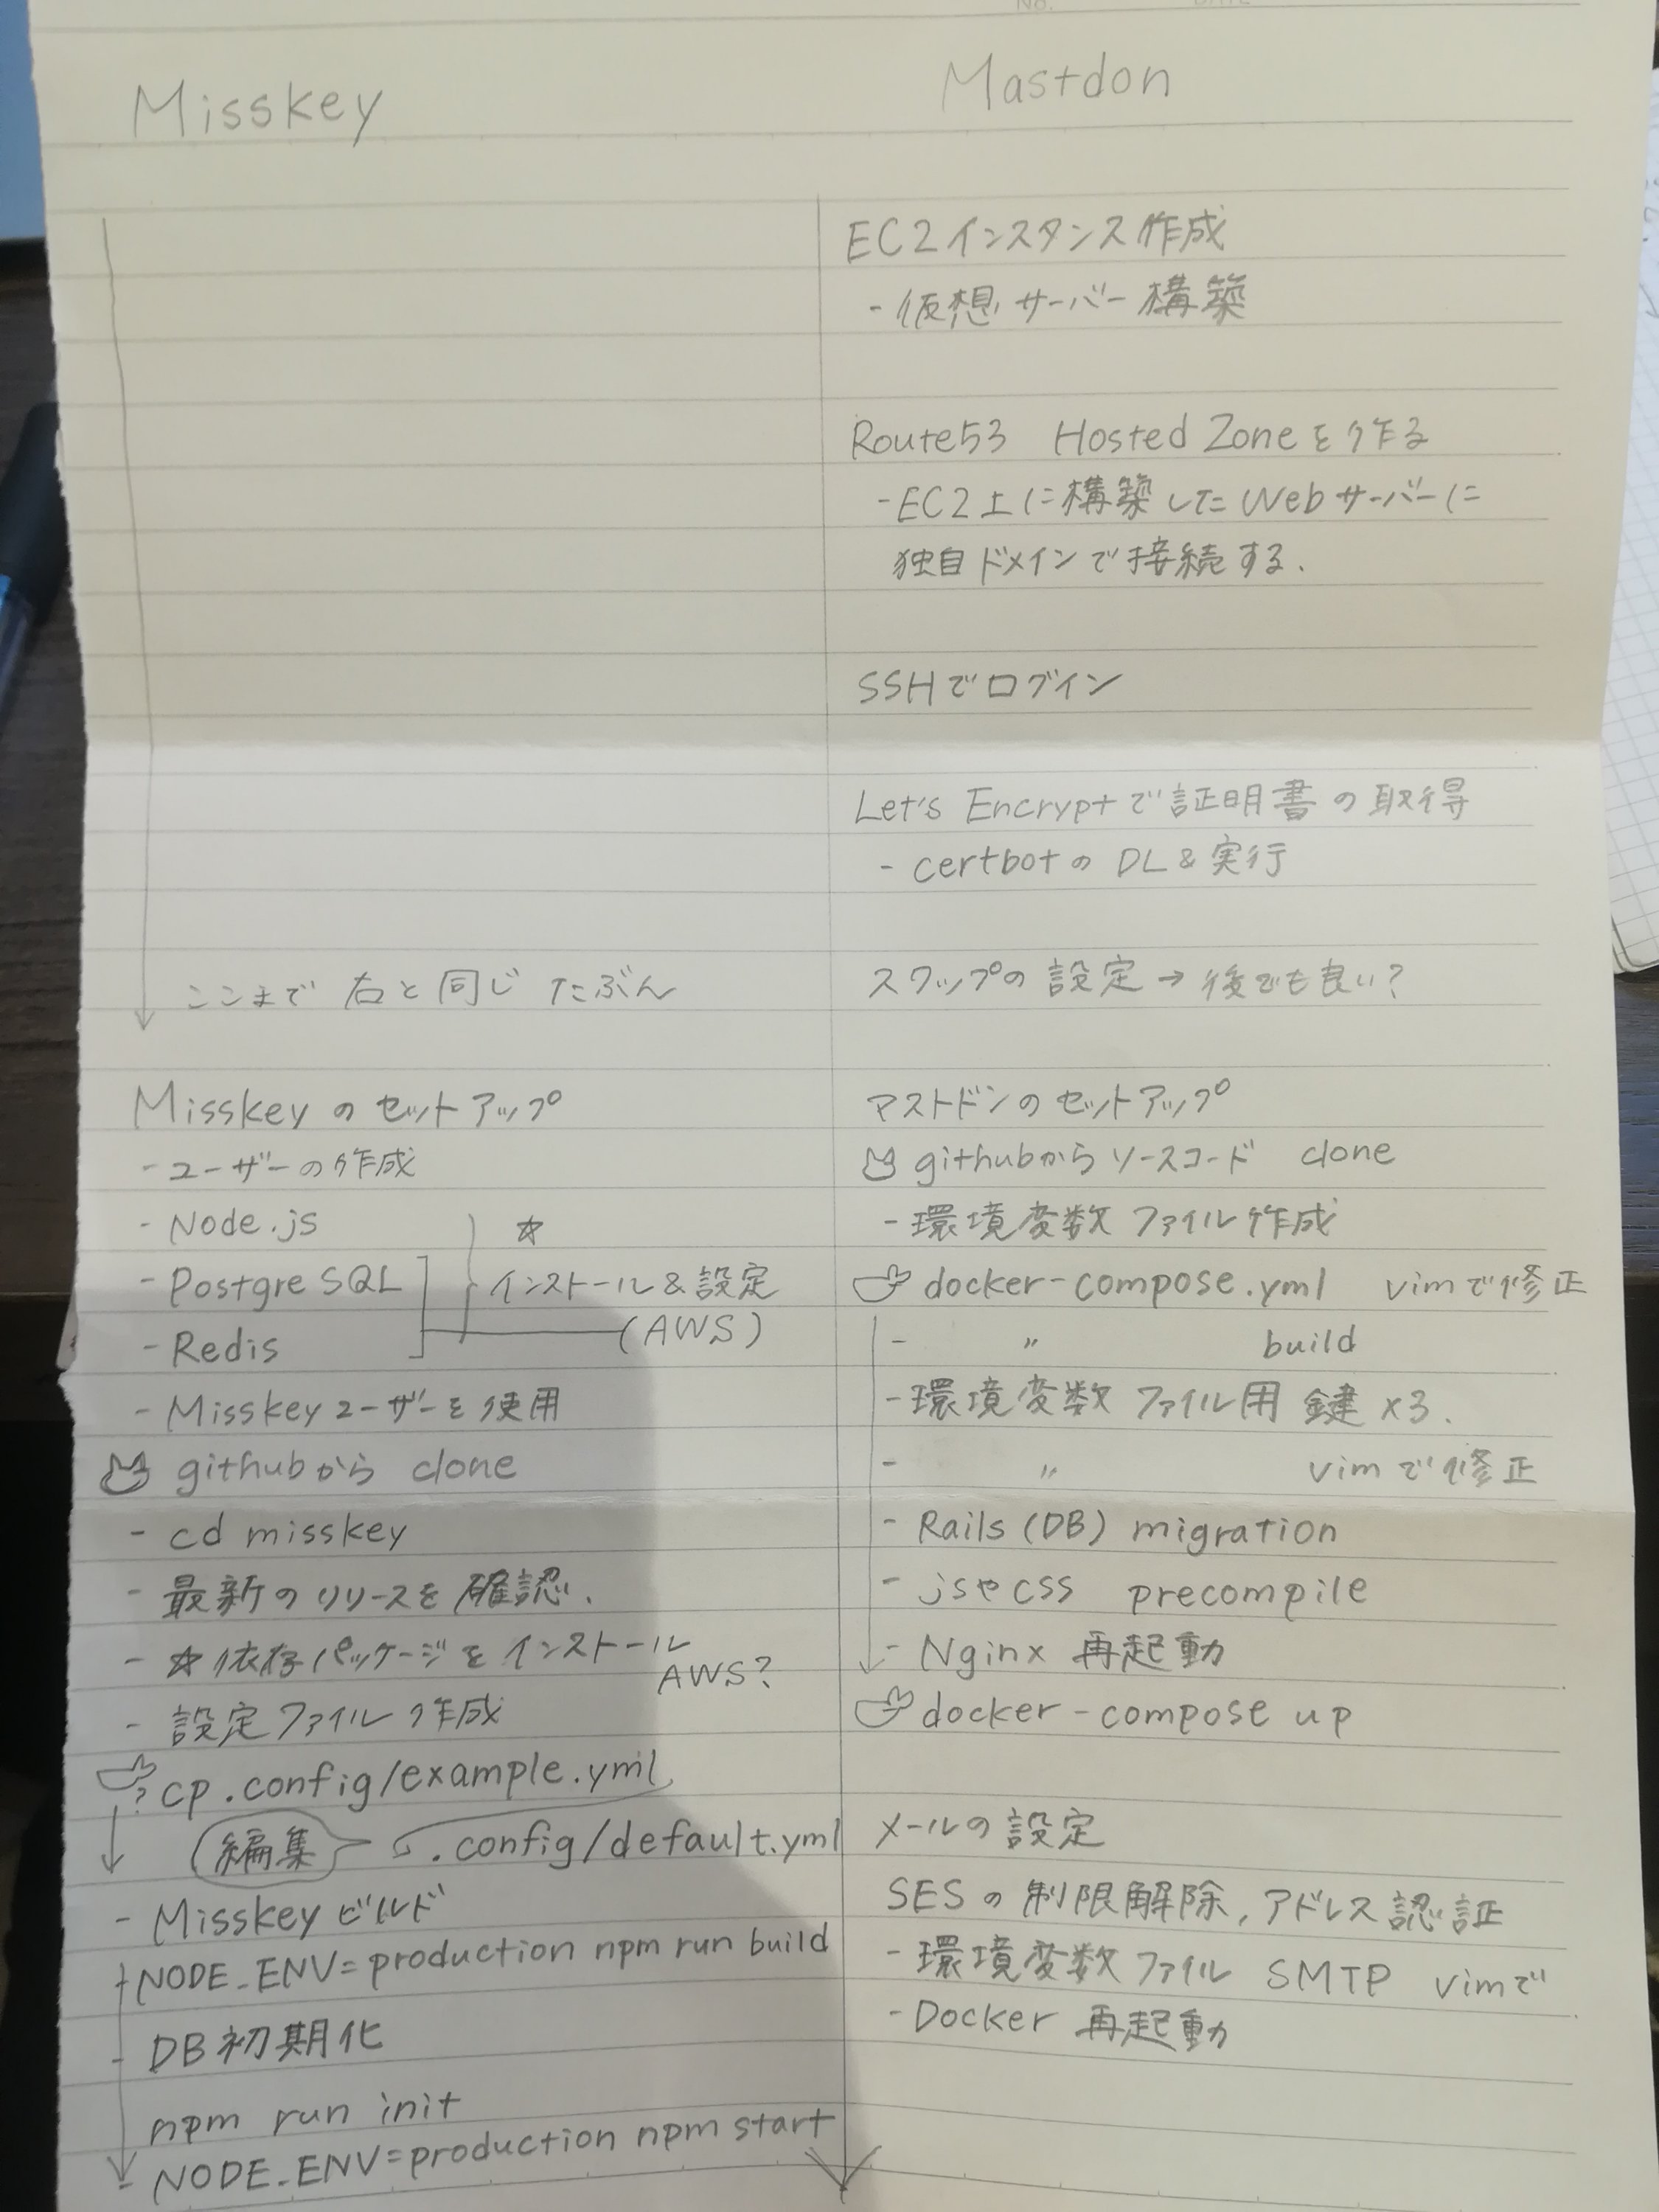 No.
DATE
Misskey
ここまで 右と同じ たぶん
Misskeyのセットアップ
- ユーザーの作成
- Node.js
- PostgreSQL
- Redis
☆
インストール&設定
(AWS)
- Misskeyユーザーを使用
githubから clone
- cd misskey
- 最新のリリースを確認.
- ☆依存パッケージをインストール
AWS?
- 設定ファイル作成
? cp .config/example.yml
編集
.config/default.yml
- Misskeyビルド
- NODE_ENV=production npm run build
- DB初期化
npm run init
- NODE_ENV=production npm start
Mastdon
EC2インスタンス作成
- 仮想サーバー構築
Route53 Hosted Zoneを作る
- EC2上に構築したWebサーバーに
独自ドメインで接続する.
SSHでログイン
Let's Encryptで証明書の取得
- certbotのDL&実行
スワップの設定→後でも良い?
マストドンのセットアップ
githubからソースコード clone
- 環境変数ファイル作成
docker-compose.yml vimで修正
- 〃 build
- 環境変数ファイル用 鍵×3.
- 〃 vimで修正
- Rails(DB) migration
- jsやcss precompile
- Nginx 再起動
docker-compose up
メールの設定
SESの制限解除, アドレス認証
- 環境変数ファイル SMTP vimで
- Docker 再起動